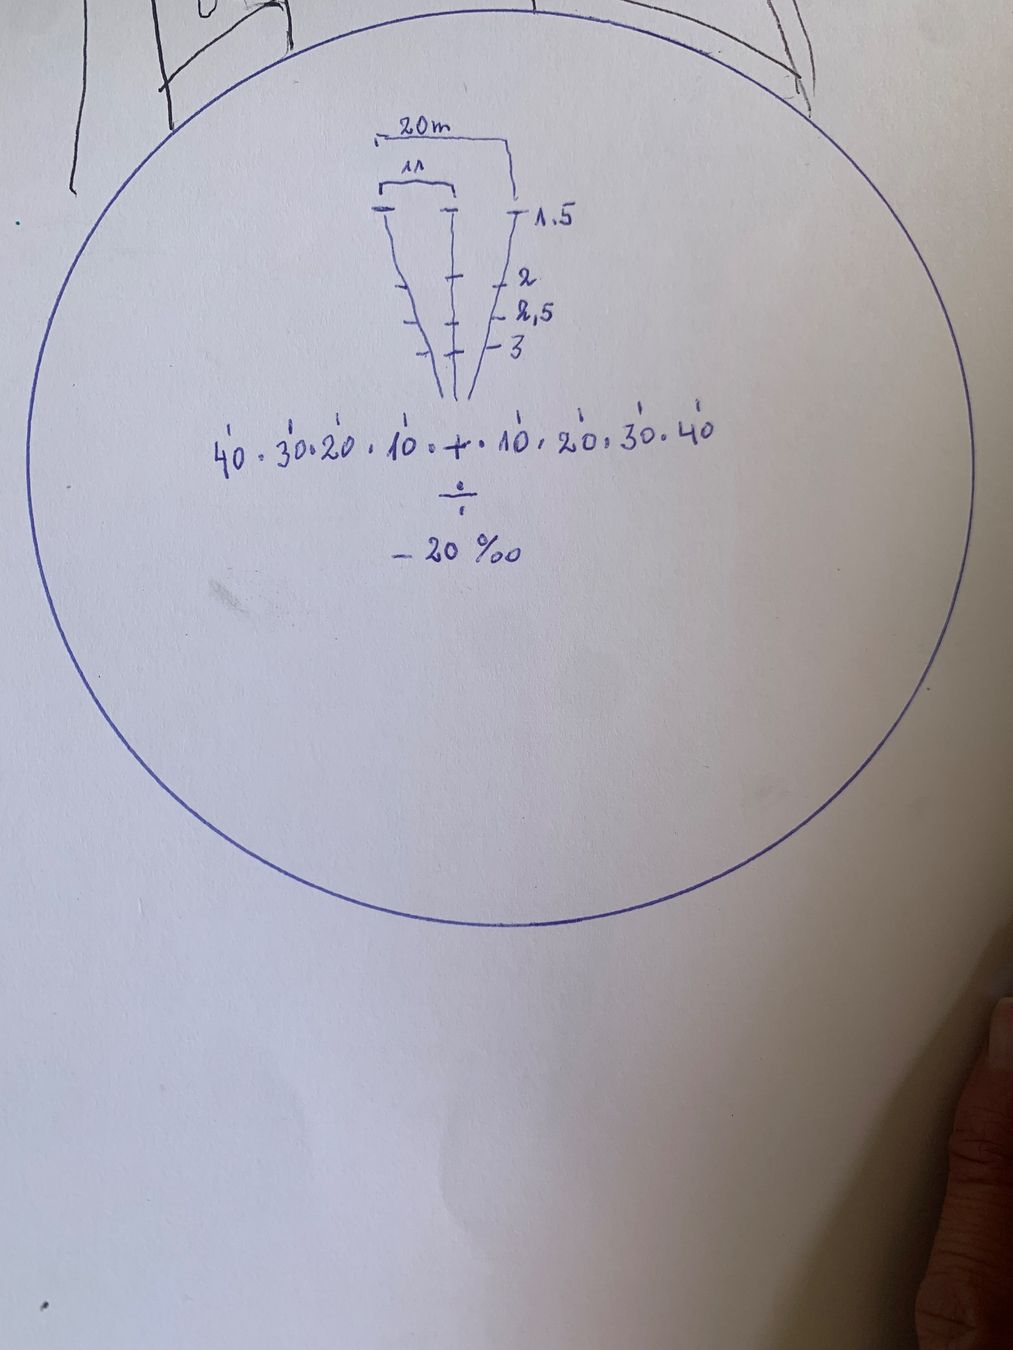 20m
11
1.5
2
2,5
3
40 . 30 . 20 . 10 . + . 10 . 20 . 30 . 40
÷
- 20 ‰